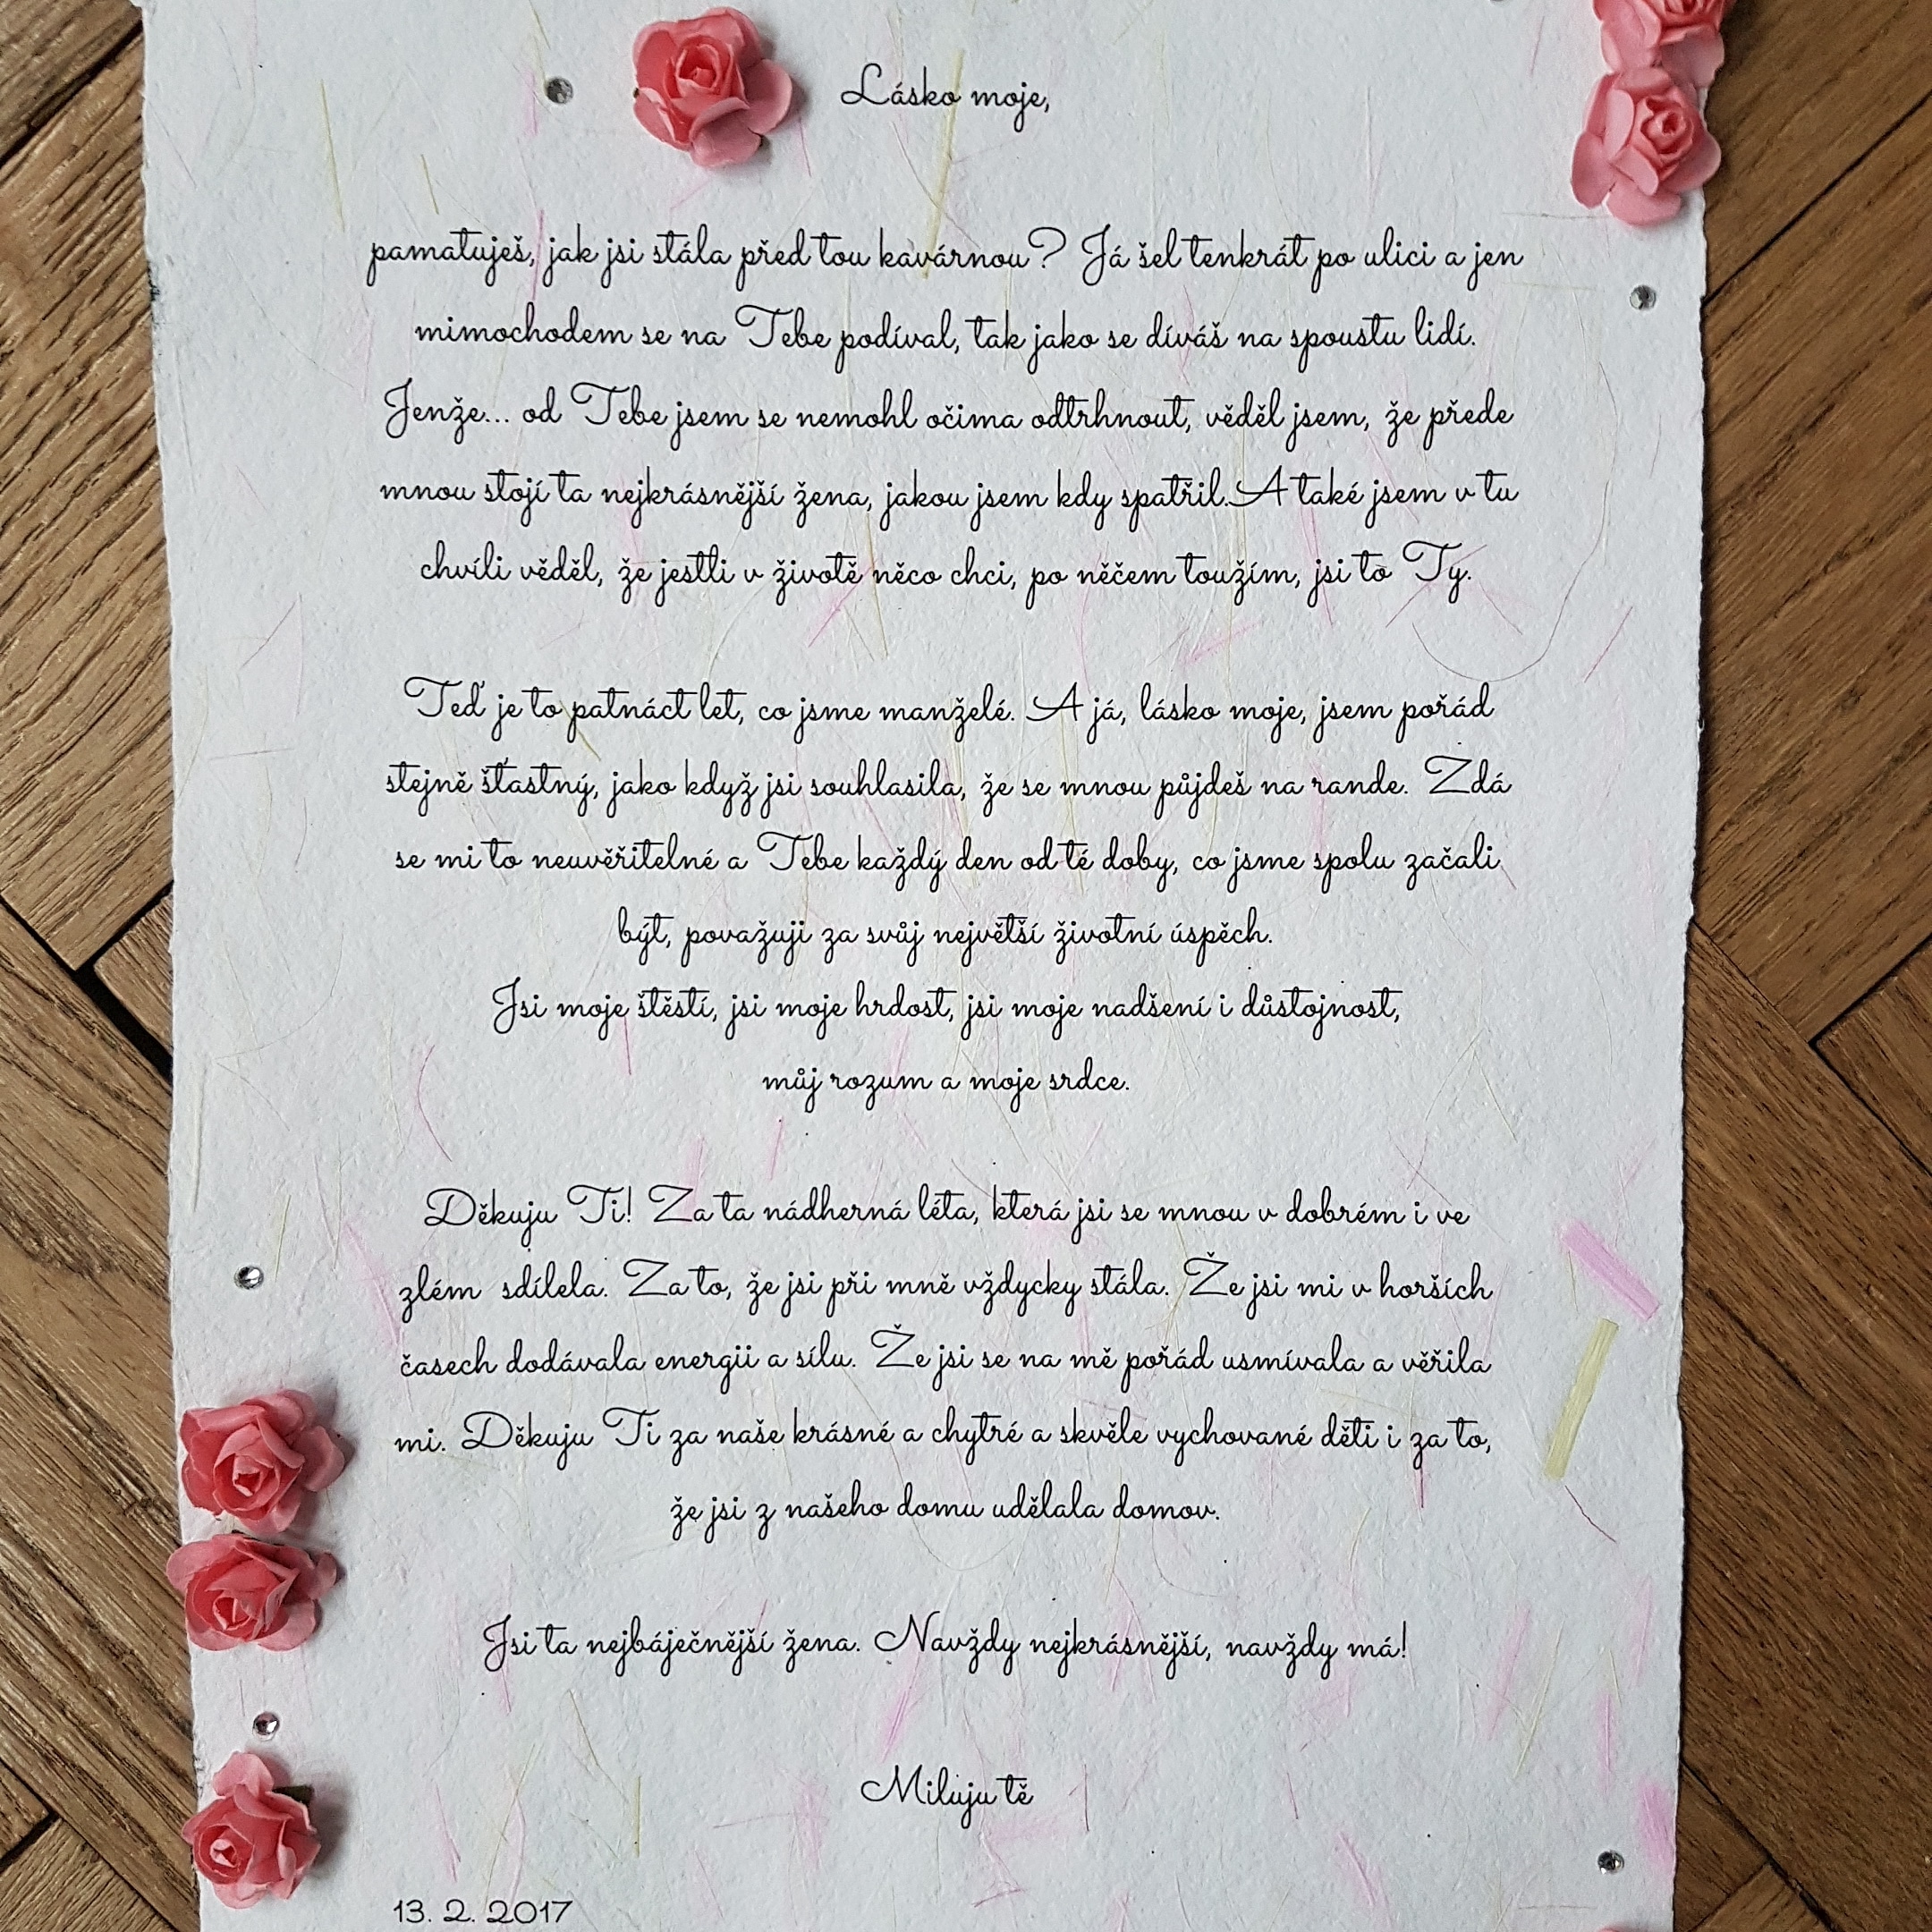 Lásko moje,
pamatuješ, jak jsi stála před tou kavárnou? Já šel tenkrát po ulici a jen
mimochodem se na Tebe podíval, tak jako se díváš na spoustu lidí.
Jenže... od Tebe jsem se nemohl očima odtrhnout, věděl jsem, že přede
mnou stojí ta nejkrásnější žena, jakou jsem kdy spatřil. A také jsem v tu
chvíli věděl, že jestli v životě něco chci, po něčem toužím, jsi to Ty.
Teď je to patnáct let, co jsme manželé. A já, lásko moje, jsem pořád
stejně šťastný, jako když jsi souhlasila, že se mnou půjdeš na rande. Zdá
se mi to neuvěřitelné a Tebe každý den od té doby, co jsme spolu začali
být, považuji za svůj největší životní úspěch.
Jsi moje štěstí, jsi moje hrdost, jsi moje nadšení i důstojnost,
můj rozum a moje srdce.
Děkuju Ti! Za ta nádherná léta, která jsi se mnou v dobrém i ve
zlém sdílela. Za to, že jsi při mně vždycky stála. Že jsi mi v horších
časech dodávala energii a sílu. Že jsi se na mě pořád usmívala a věřila
mi. Děkuju Ti za naše krásné a chytré a skvěle vychované děti i za to,
že jsi z našeho domu udělala domov.
Jsi ta nejbáječnější žena. Navždy nejkrásnější, navždy má!
Miluju tě
13. 2. 2017